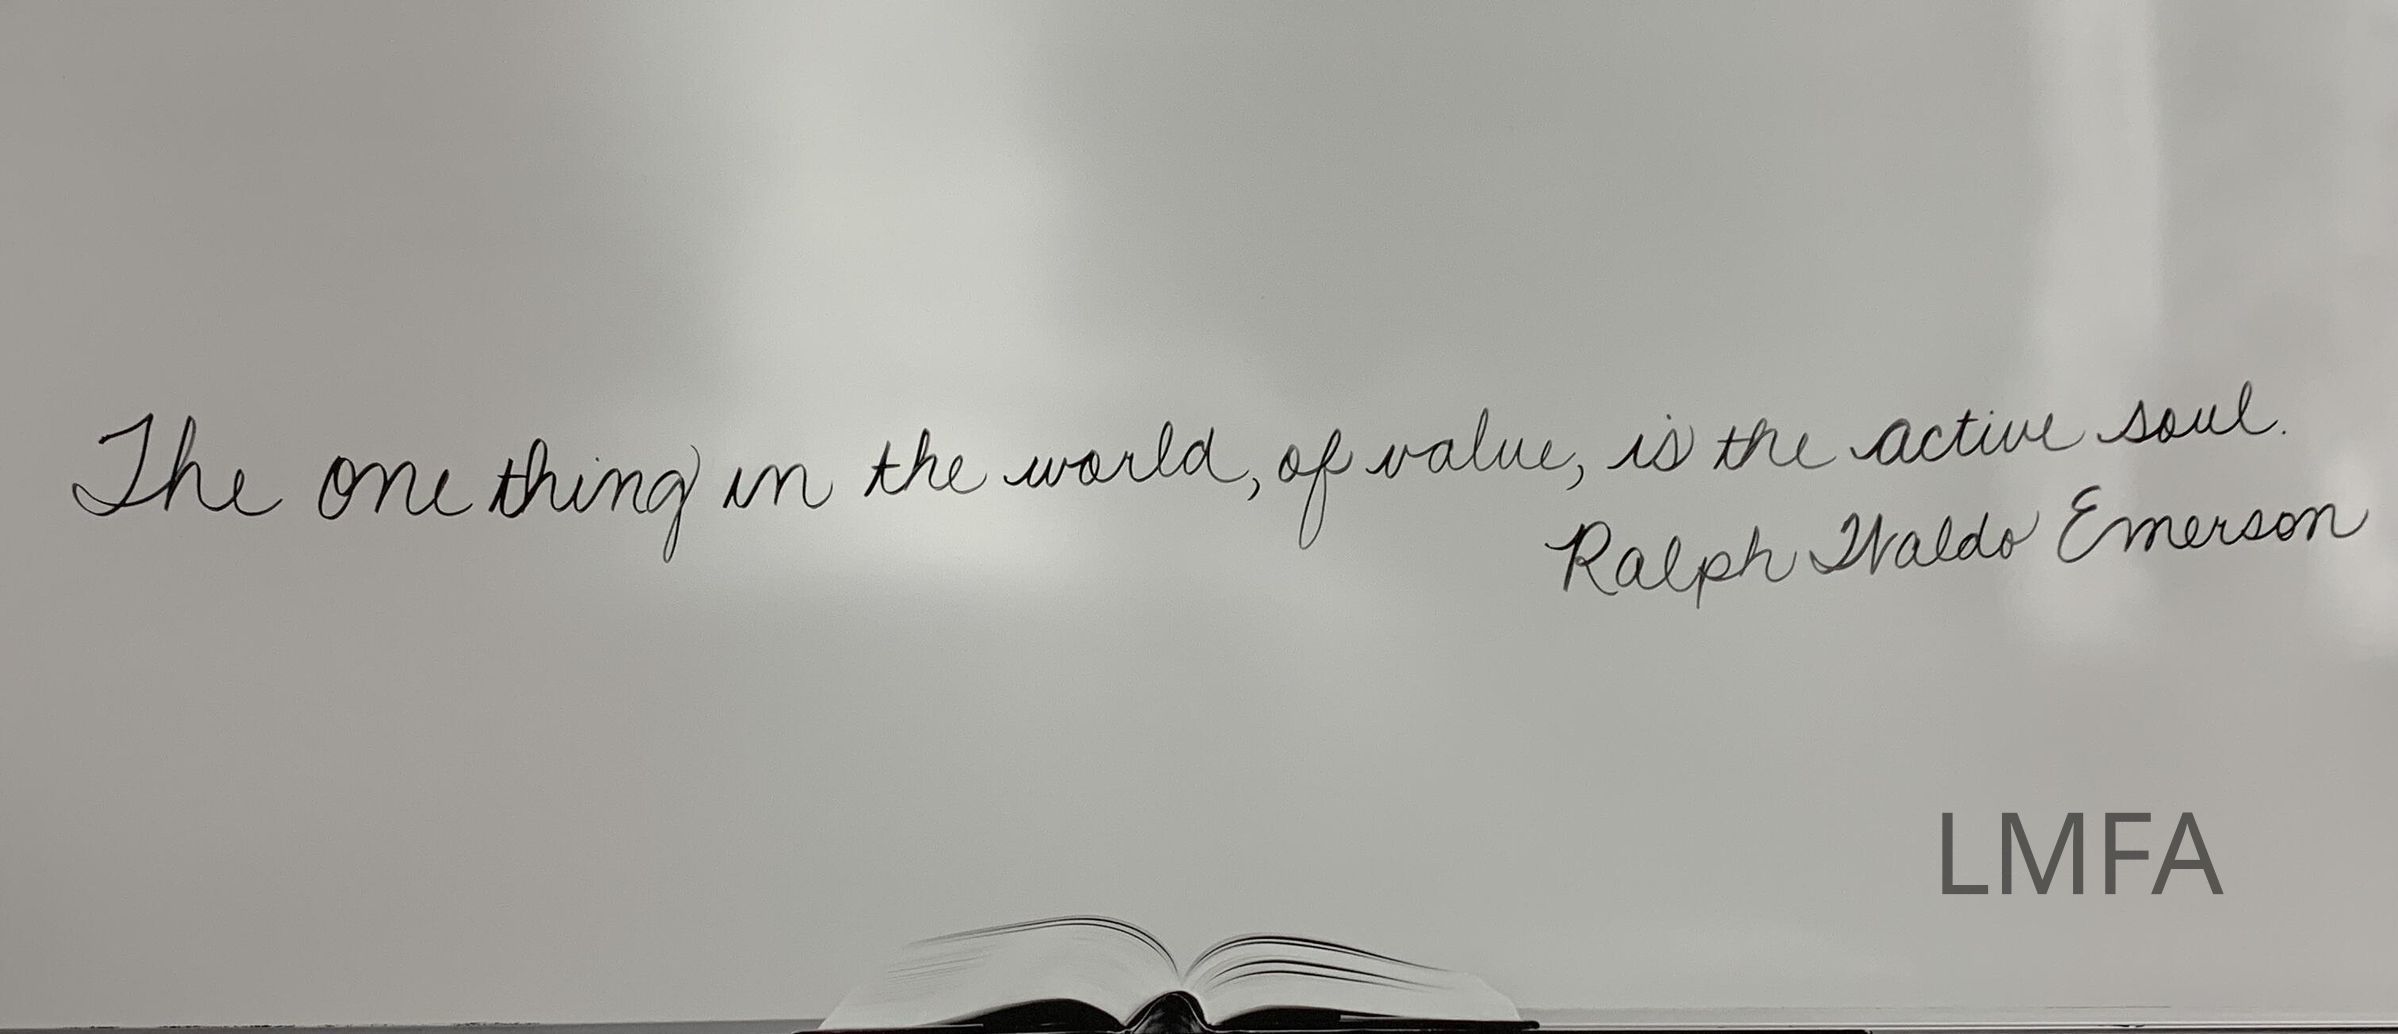 The one thing in the world, of value, is the active soul.
Ralph Waldo Emerson
LMFA